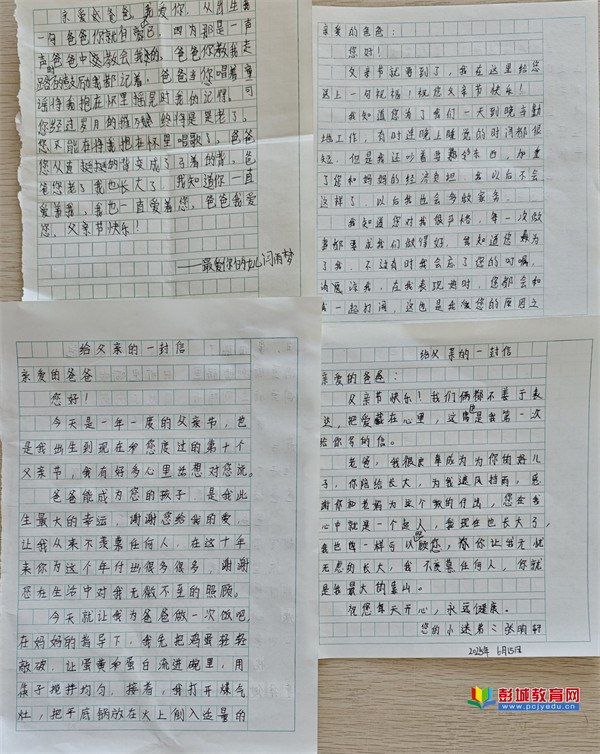 亲爱的爸爸，我爱你，从出生第
一句爸爸你就包含了，因为那是一声
声爸爸中教会我的。爸爸你教我走
路时的鼓励我都记着，爸爸当您唱着童
谣将我抱在怀里摇晃时我的记得。可
您经过岁月的
您又能在将我抱在怀里唱歌了，爸爸
您从直挺挺的背变成了弓着的背，爸
爸您老了我也长大了。我知道你一直
爱着我，我也一直爱着您，爸爸我爱
您，父亲节快乐！
——最爱你的女儿闫雨梦
亲爱的爸爸：
您好！
父亲节就要到了，我在这里给您
送上一句祝福！祝您父亲节快乐！
我知道您为了我们一天到晚辛勤
地工作，有时连晚上睡觉的时间都很
短。但是我还吵着要买东西，加重
了您和妈妈的经济负担，我以后不会
这样了，以后我也会多做家务。
我知道您对我很严格，每一次做
事都要求我们做得好，我知道您是为
了我，不过有时我会忘了您的叮嘱，
请原谅我。在我表现好时，您都会和
我一起打闹，这也是我爱您的原因之
给父亲的一封信
亲爱的爸爸
您好！
今天是一年一度的父亲节，也
是我出生到现在和您度过的第十个
父亲节，我有好多心里话想对您说。
爸爸能成为您的孩子，是我此
生最大的幸运，谢谢您给我的爱，
让我从来不羡慕任何人，在这十年
来你为这个家付出很多很多，谢谢
您在生活中对我无微不至的照顾。
今天就让我为爸爸做一次饭吧，
在妈妈的指导下，我先把鸡蛋轻轻
敲破，让蛋黄和蛋白流进碗里，用
筷子搅拌均匀。接着，我打开煤气
灶，把平底锅放在火上倒入适量的
给父亲的一封信
亲爱的爸爸：
父亲节快乐！我们俩都不善于表
达，把爱藏在心里，这算是我第一次
给你写的信。
老爸，我很庆幸成为为你的好儿
子，你陪给长大，为我遮风挡雨，感
谢你和老妈为这个家的付出，您在我
心中就是一个超人，我现在也长大了，
我也因一样可以照顾您，感你让我无忧
无虑的长大，我不羡慕任何人，你就
是我最大的靠山。
祝您每天开心，永远健康。
您的小迷弟：张明轩
2025年6月15日
彭城教育网
www.pcjyedu.cn